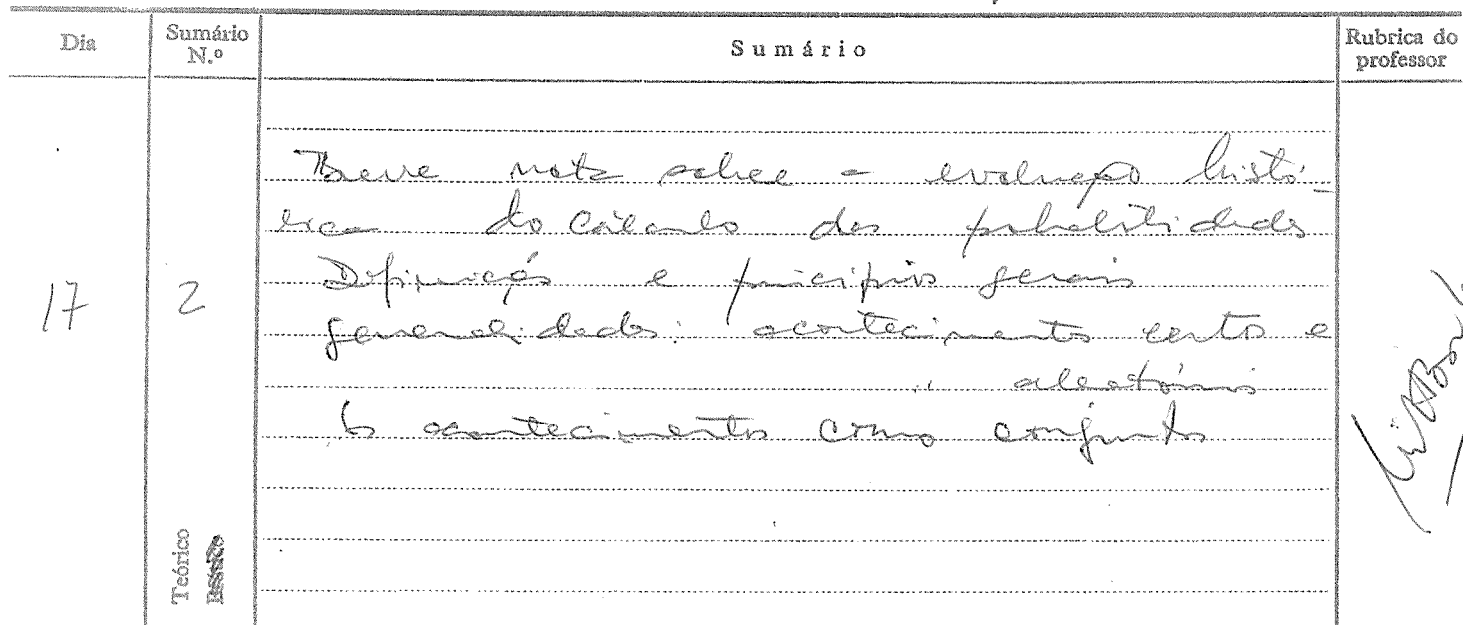 Dia
Sumário
N.º
Sumário
Rubrica do
professor
Breve nota sobre a evolução histó-
rica do cálculo das probabilidades
Definições e princípios gerais
17
2
generalidades: acontecimentos certos e
" aleatórios
Os acontecimentos como conjuntos
Teórico